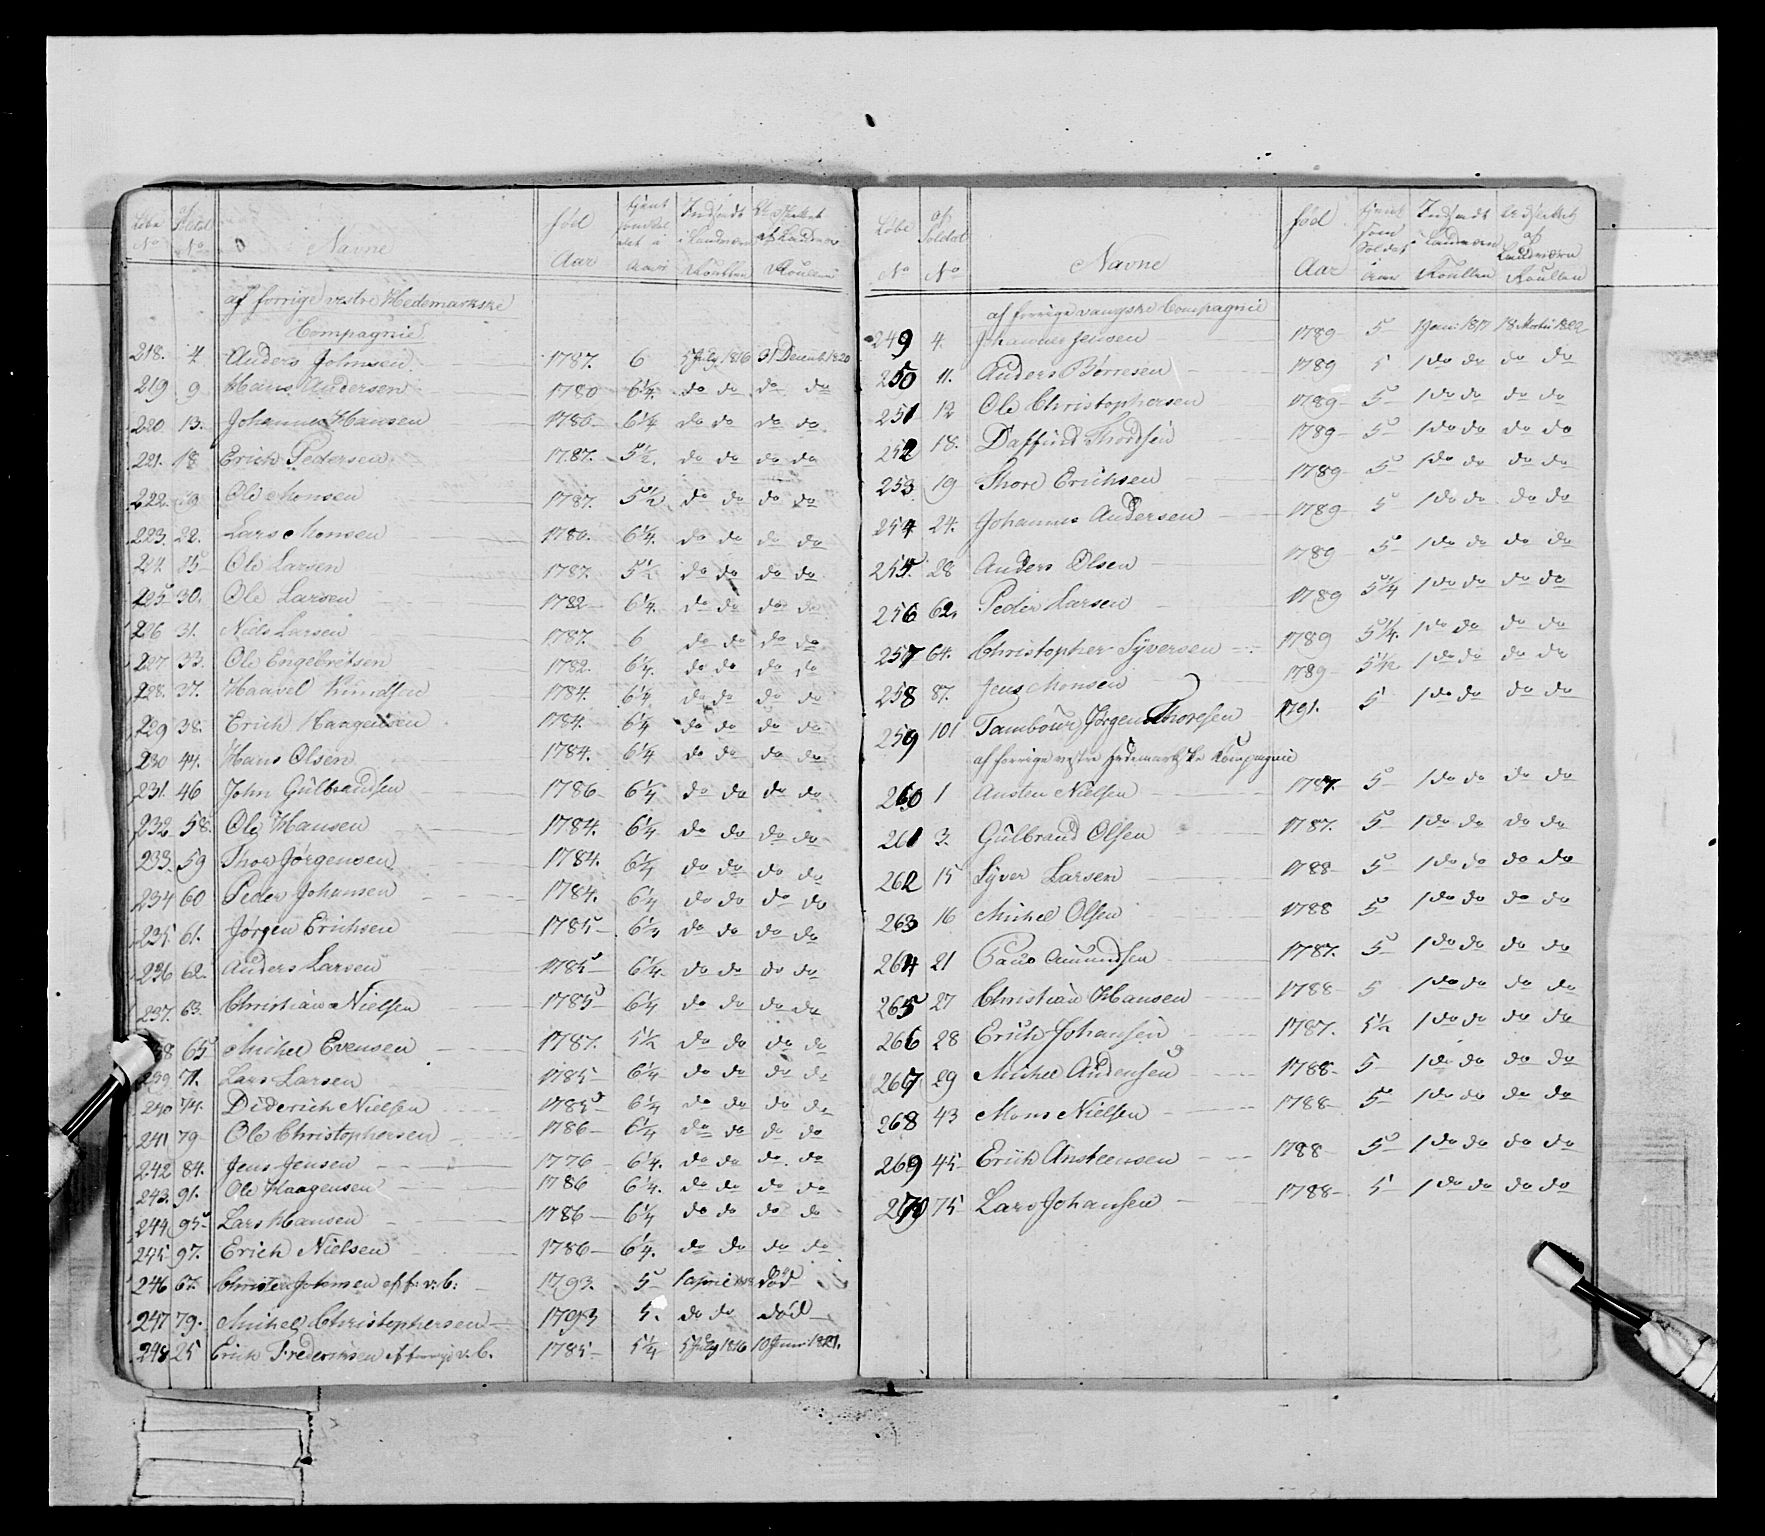 Løbe No | af Soldat No | Navne | født Aar | tjent som Soldat i Aar | Indsadt i Landværn Roullen | Udslettet af Landværn Roullen
af forrige vestre Hedemarkske
Compagnie
218. 4 Anders Johnsen 1787. 6 5 July 1816 31 Decemb. 1820
219 9 Hans Andersen 1780 6¼. do do do do
220 13. Johannes Hansen 1786 6¼ do do do do
221. 18 Erich Pedersen 1787. 5½. do do do do
222. 19 Ole Monsen 1787. 5½ do do do do
223. 22. Lars Monsen 1786. 6¼. do do do do
224. 25 Ole Larsen 1787. 5½ do do do do
225 30. Ole Larsen 1782 6¼. do do do do
226 31. Niels Larsen 1787. 6 do do do do
227. 33. Ole Engebretsen 1782. 6¼. do do do do
228. 37. Haavel Knudsen 1784. 6¼ do do do do
229 38. Erich Haagensen 1784. 6¼ do do do do
230 44. Hans Olsen 1784. 6¼ do do do do
231. 46 John Gulbrandsen 1786 6¼ do do do do
232. 58. Ole Hansen 1784. 6¼ do do do do
233. 59 Thor Jørgensen 1784. 6¼ do do do do
234 60 Peder Johansen 1784. 6¼ do do do do
235 61. Jørgen Erichsen 1785 6¼ do do do do
236 62. Anders Larsen 1785 6¼. do do do do
237. 63. Christian Nielsen 1785 6¼ do do do do
38 65 Michel Evensen 1787. 5½ do do do do
239. 71. Lars Larsen 1785 6¼ do do do do
240 74. Diderich Nielsen 1785 6¼ do do do do
241 79 Ole Christophersen 1786 6¼ do do do do
242 84. Jens Jensen 1776 6¼. do do do do
243. 91. Ole Haagensen 1786 6¼. do do do do
244 95 Lars Hansen 1786 6¼ do do do do
245 97. Erich Nielsen 1786 6¼. do do do do
246 67. Christen Johnsen af f: v: C: 1793. 5 1 April død
247 79. Michel Christophersen 1793 5. do do død
248 25 Erich Frederiksen af forrige v. C. 1785 5¼ 5 July 1816 10 Juni 1821.
Løbe No | af Soldat No | Navne | født Aar | tjent som Soldat i Aar | Indsadt i Landværn Roullen | Udslettet af Landværn Roullen
af forrige vangske Compagnie
249 4. Johannes Jensen 1789 5 1 Juni 1817 18 Martii 1822
250 11. Anders Børresen 1789 5 1 do do do do
251 12 Ole Christophersen 1789 5 1 do do do do
252 18. Daffind Thordsen 1789 5 1 do do do do
253 19 Thore Erichsen 1789 5 1 do do do do
254 24. Johannes Andersen 1789 5 1 do do do do
255. 28 Anders Olsen 1789 5 1 do do do do
256 62. Peder Larsen 1789 5¼ 1 do do do do
257 64. Christopher Syversen 1789 5¼. 1 do do do do
258 87. Jens Monsen 1789 5½ 1 do do do do
259 101 Tambour Jørgen Thoresen 1791. 5 1 do do do do
af forrige vestre Hedemarkske Compagnie
260 1 Austen Nielsen 1787. 5 1 do do do do
261 3. Gulbrand Olsen 1787. 5 1 do do do do
262 15 Syver Larsen 1788 5 1 do do do do
263 16 Michel Olsen 1788 5 1 do do do do
264 21 Paus Amundsen 1787. 5 1 do do do do
265 27 Christian Hansen 1788 5 1 do do do do
266 28 Erich Johansen 1787. 5½ 1 do do do do
267 29 Michel Andersen 1788 5 1 do do do do
268 43 Mons Nielsen 1788 5 1 do do do do
269 45 Erich Austeensen 1788 5 1 do do do do
270 75 Lars Johansen 1788 5 1 do do do do